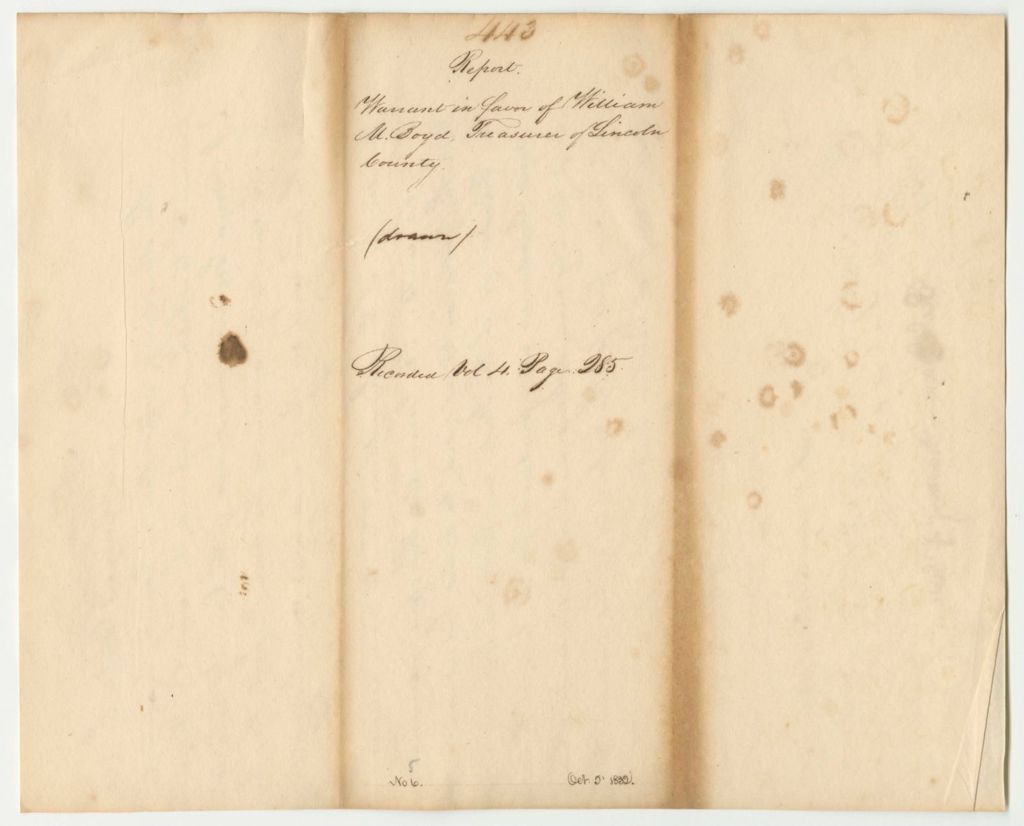 443
Report.
Warrant in favor of William
M. Boyd, Treasurer of Lincoln
County.
(drawn)
Recorded Vol 4. Page 285.
5
No 6.
Oct.